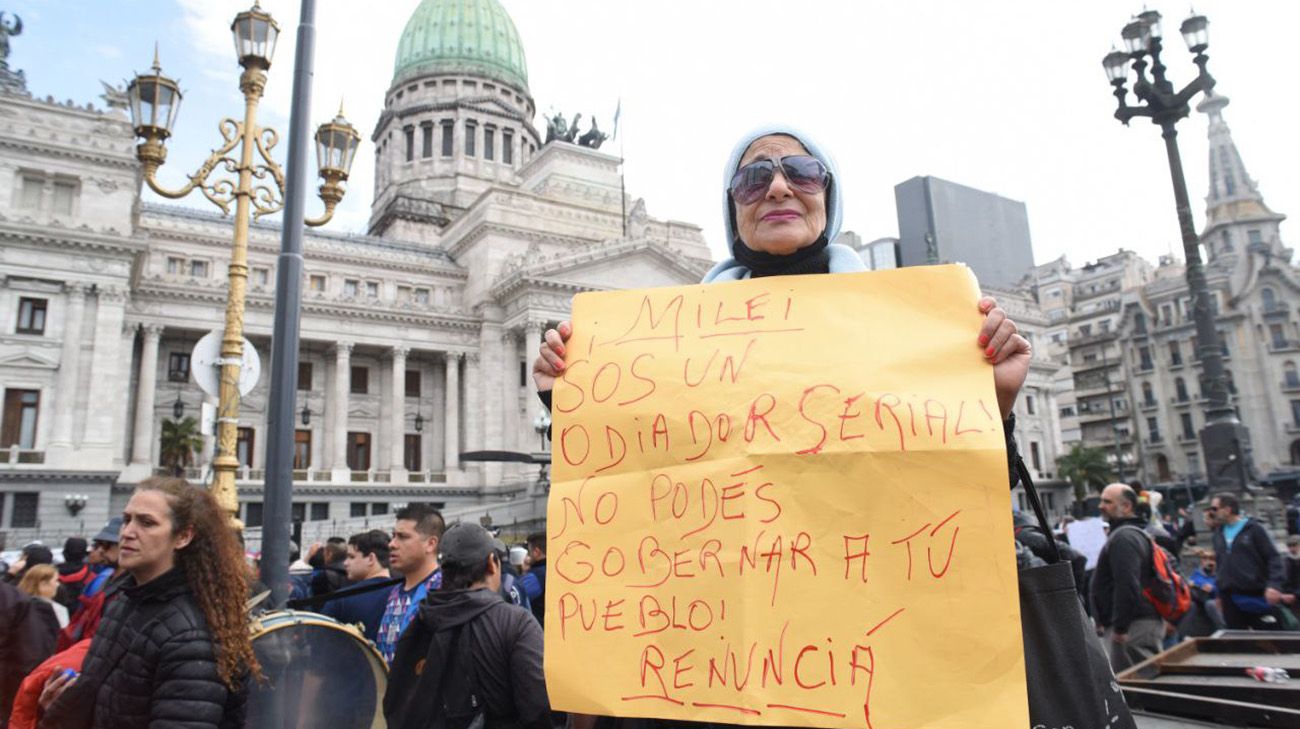 ¡MILEI
SOS UN
ODIADOR SERIAL!
NO PODÉS
GOBERNAR A TÚ
PUEBLO!
RENUNCIÁ